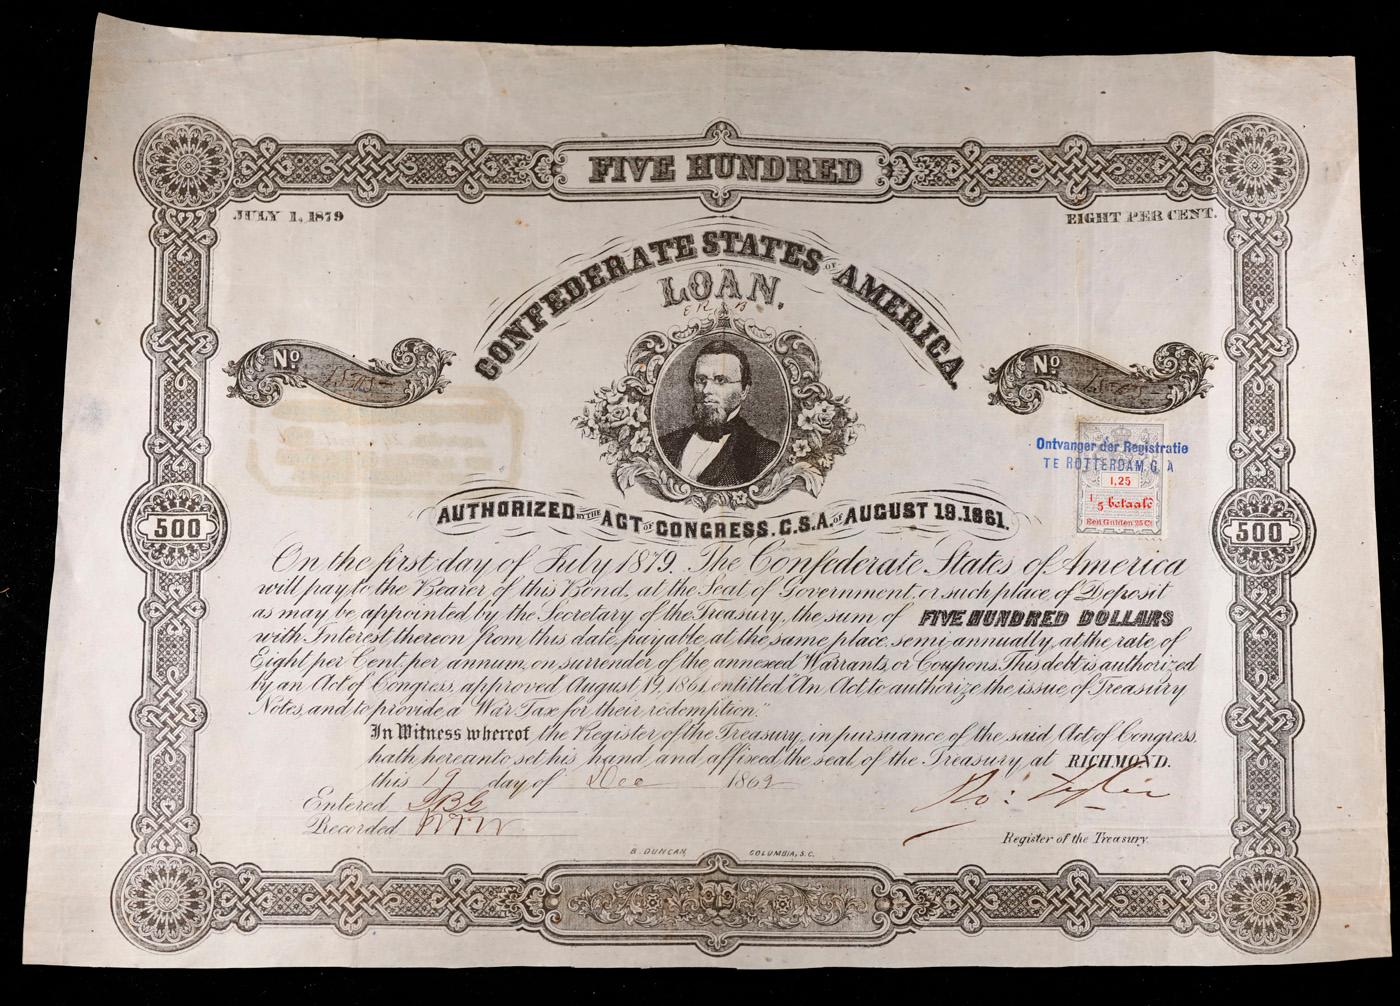 FIVE HUNDRED
JULY 1, 1879
EIGHT PER CENT.
CONFEDERATE STATES OF AMERICA
LOAN.
No
No
Ontvanger der Registratie
TE ROTTERDAM, G. A
1,25
1/5 betaald
Een Gulden 25 Ct
AUTHORIZED BY THE ACT OF CONGRESS. C.S.A. OF AUGUST 19.1861.
500
500
On the first day of July 1879. The Confederate States of America
will pay to the Bearer of this Bond, at the Seat of Government, or such place of Deposit
as may be appointed by the Secretary of the Treasury, the sum of FIVE HUNDRED DOLLARS
with Interest thereon from this date, payable, at the same place, semi-annually, at the rate of
Eight per Cent, per annum, on surrender of the annexed Warrants, or Coupons. This debt is authorized
by an Act of Congress, approved August, 19, 1861, entitled "An Act to authorize the issue of Treasury
Notes, and to provide a War Tax for their redemption."
In Witness whereof, the Register of the Treasury, in pursuance of the said Act of Congress,
hath hereunto set his hand, and affixed the seal of the Treasury at RICHMOND.
this 19 day of Dec 1862
Entered
Recorded
Ro: Tyler
Register of the Treasury.
B. DUNCAN, COLUMBIA, S.C.